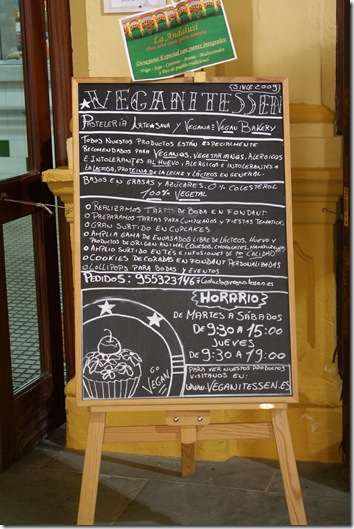 La Andalusí
Desayuno Especial con panes integrales:
(SINCE 2009)
VEGANITESSEN
PASTELERÍA ARTESANA Y VEGANA: VEGAN BAKERY
TODOS NUESTROS PRODUCTOS ESTÁN ESPECIALMENTE
RECOMENDADOS PARA VEGANOS, VEGETARIANOS, ALÉRGICOS
E INTOLERANTES AL HUEVO, ALÉRGICOS E INTOLERANTES A
LA LACTOSA, PROTEINA DE LA LECHE Y LÁCTEOS EN GENERAL.
BAJOS EN GRASAS Y AZÚCARES, 0% COLESTEROL
100% VEGETAL
O REALIZAMOS TARTAS DE BODA EN FONDANT
O PREPARAMOS TARTAS PARA CUMPLEAÑOS Y FIESTAS TEMATICAS
O GRAN SURTIDO EN CUPCAKES
O AMPLIA GAMA DE ENVASADOS LIBRE DE LÁCTEOS, HUEVO Y
PRODUCTOS DE ORIGEN ANIMAL (QUESOS, CHOCOLATES, HAMBURGUESAS)
O AMPLIO SURTIDO EN TÉS E INFUSIONES DE 1ª CALIDAD
O COOKIES DECORADAS EN FONDANT PERSONALIZADAS
O LOLLIPOPS PARA BODAS Y EVENTOS
PEDIDOS: 955323146 contacto@veganitessen.es
HORARIO
DE MARTES A SÁBADOS
DE 9:30 A 15:00
JUEVES
DE 9:30 A 19:00
GO
VEGAN
PARA VER NUESTROS PRODUCTOS
VISITANOS EN:
www.VEGANITESSEN.ES